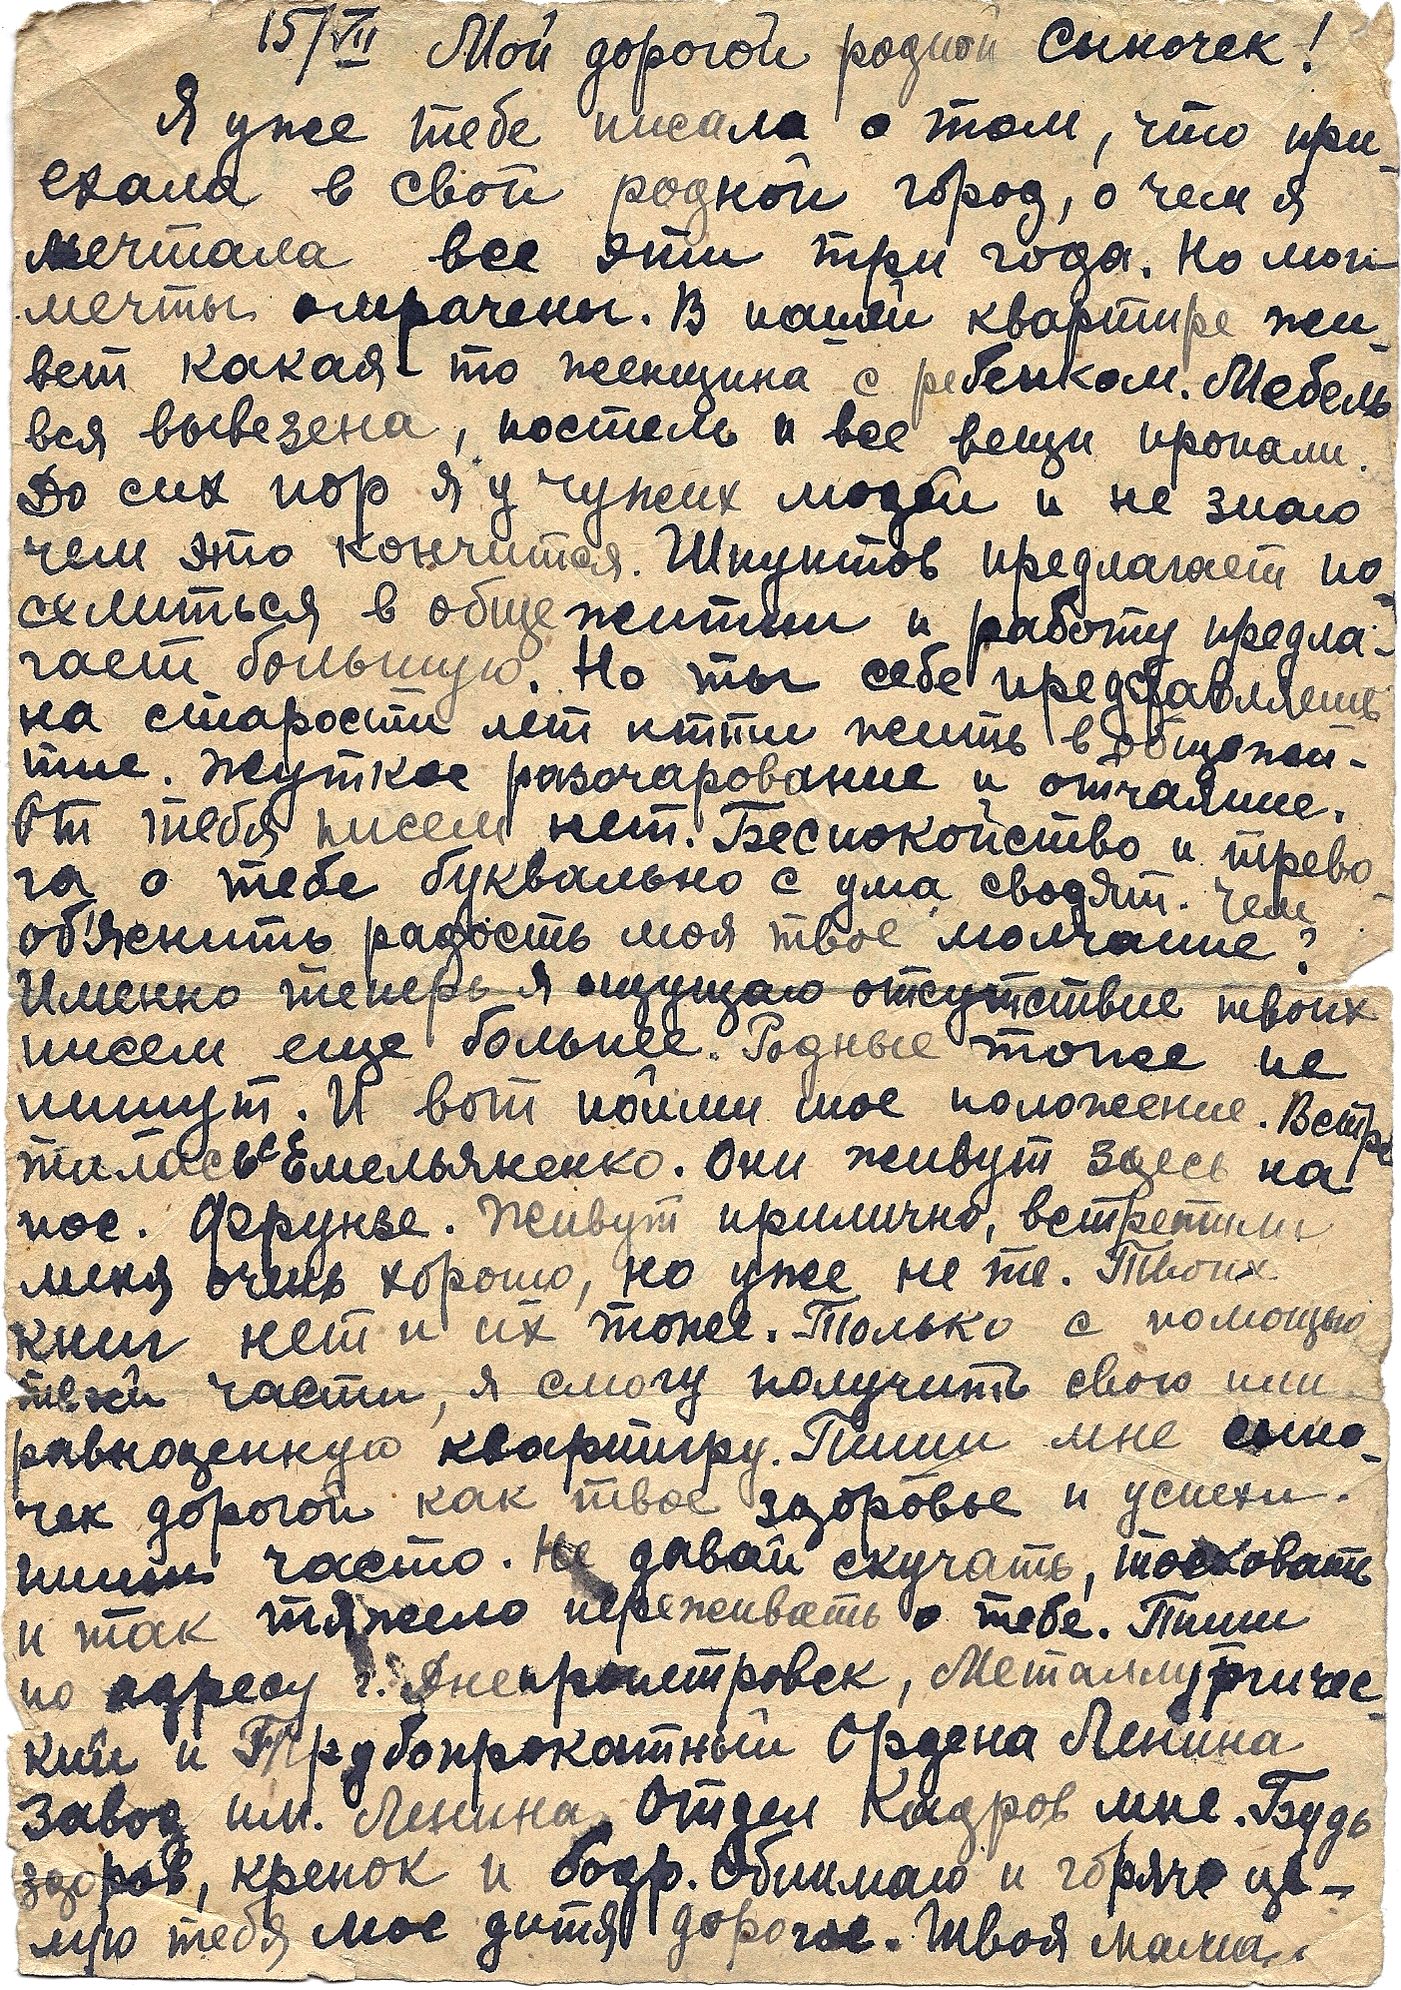 15/VII Мой дорогой родной сыночек!
Я уже тебе писала о том, что при-
ехала в свой родной город, о чем я
мечтала все эти три года. Но мои
мечты омрачены. В нашей квартире жи-
вет какая-то женщина с ребенком. Мебель
вся вывезена, постель и все вещи пропали.
До сих пор я у чужих людей и не знаю
чем это кончится. Шпунтов предлагает по-
селиться в общежитии и работу предла-
гает большую. Но ты себе представляешь
на старости лет итти жить в общежи-
тие. Жуткое разочарование и отчаяние.
От тебя писем нет. Беспокойство и трево-
га о тебе буквально с ума сводят. Чем
об'яснить радость моя твое молчание?
Именно теперь я ощущаю отсутствие твоих
писем еще больнее. Родные тоже не
пишут. И вот пойми мое положение. Встре
тилась с Емельяненко. Они живут здесь на
пос. Фрунзе. Живут прилично, встретили
меня очень хорошо, но уже не те. Твоих
книг нет и их тоже. Только с помощью
твоей части, я смогу получить свою или
равноценную квартиру. Пиши мне сыно-
чек дорогой как твое здоровье и успехи.
пиши часто. Не давай скучать, тосковать
и так тяжело переживать о тебе. Пиши
по адресу г. Днепропетровск, Металлургичес-
кий и Трубопрокатный Ордена Ленина
Завод им. Ленина Отдел Кадров мне. Будь
здоров, крепок и бодр. Обнимаю и горячо це-
лую тебя мое дитя дорогое. Твоя мама.